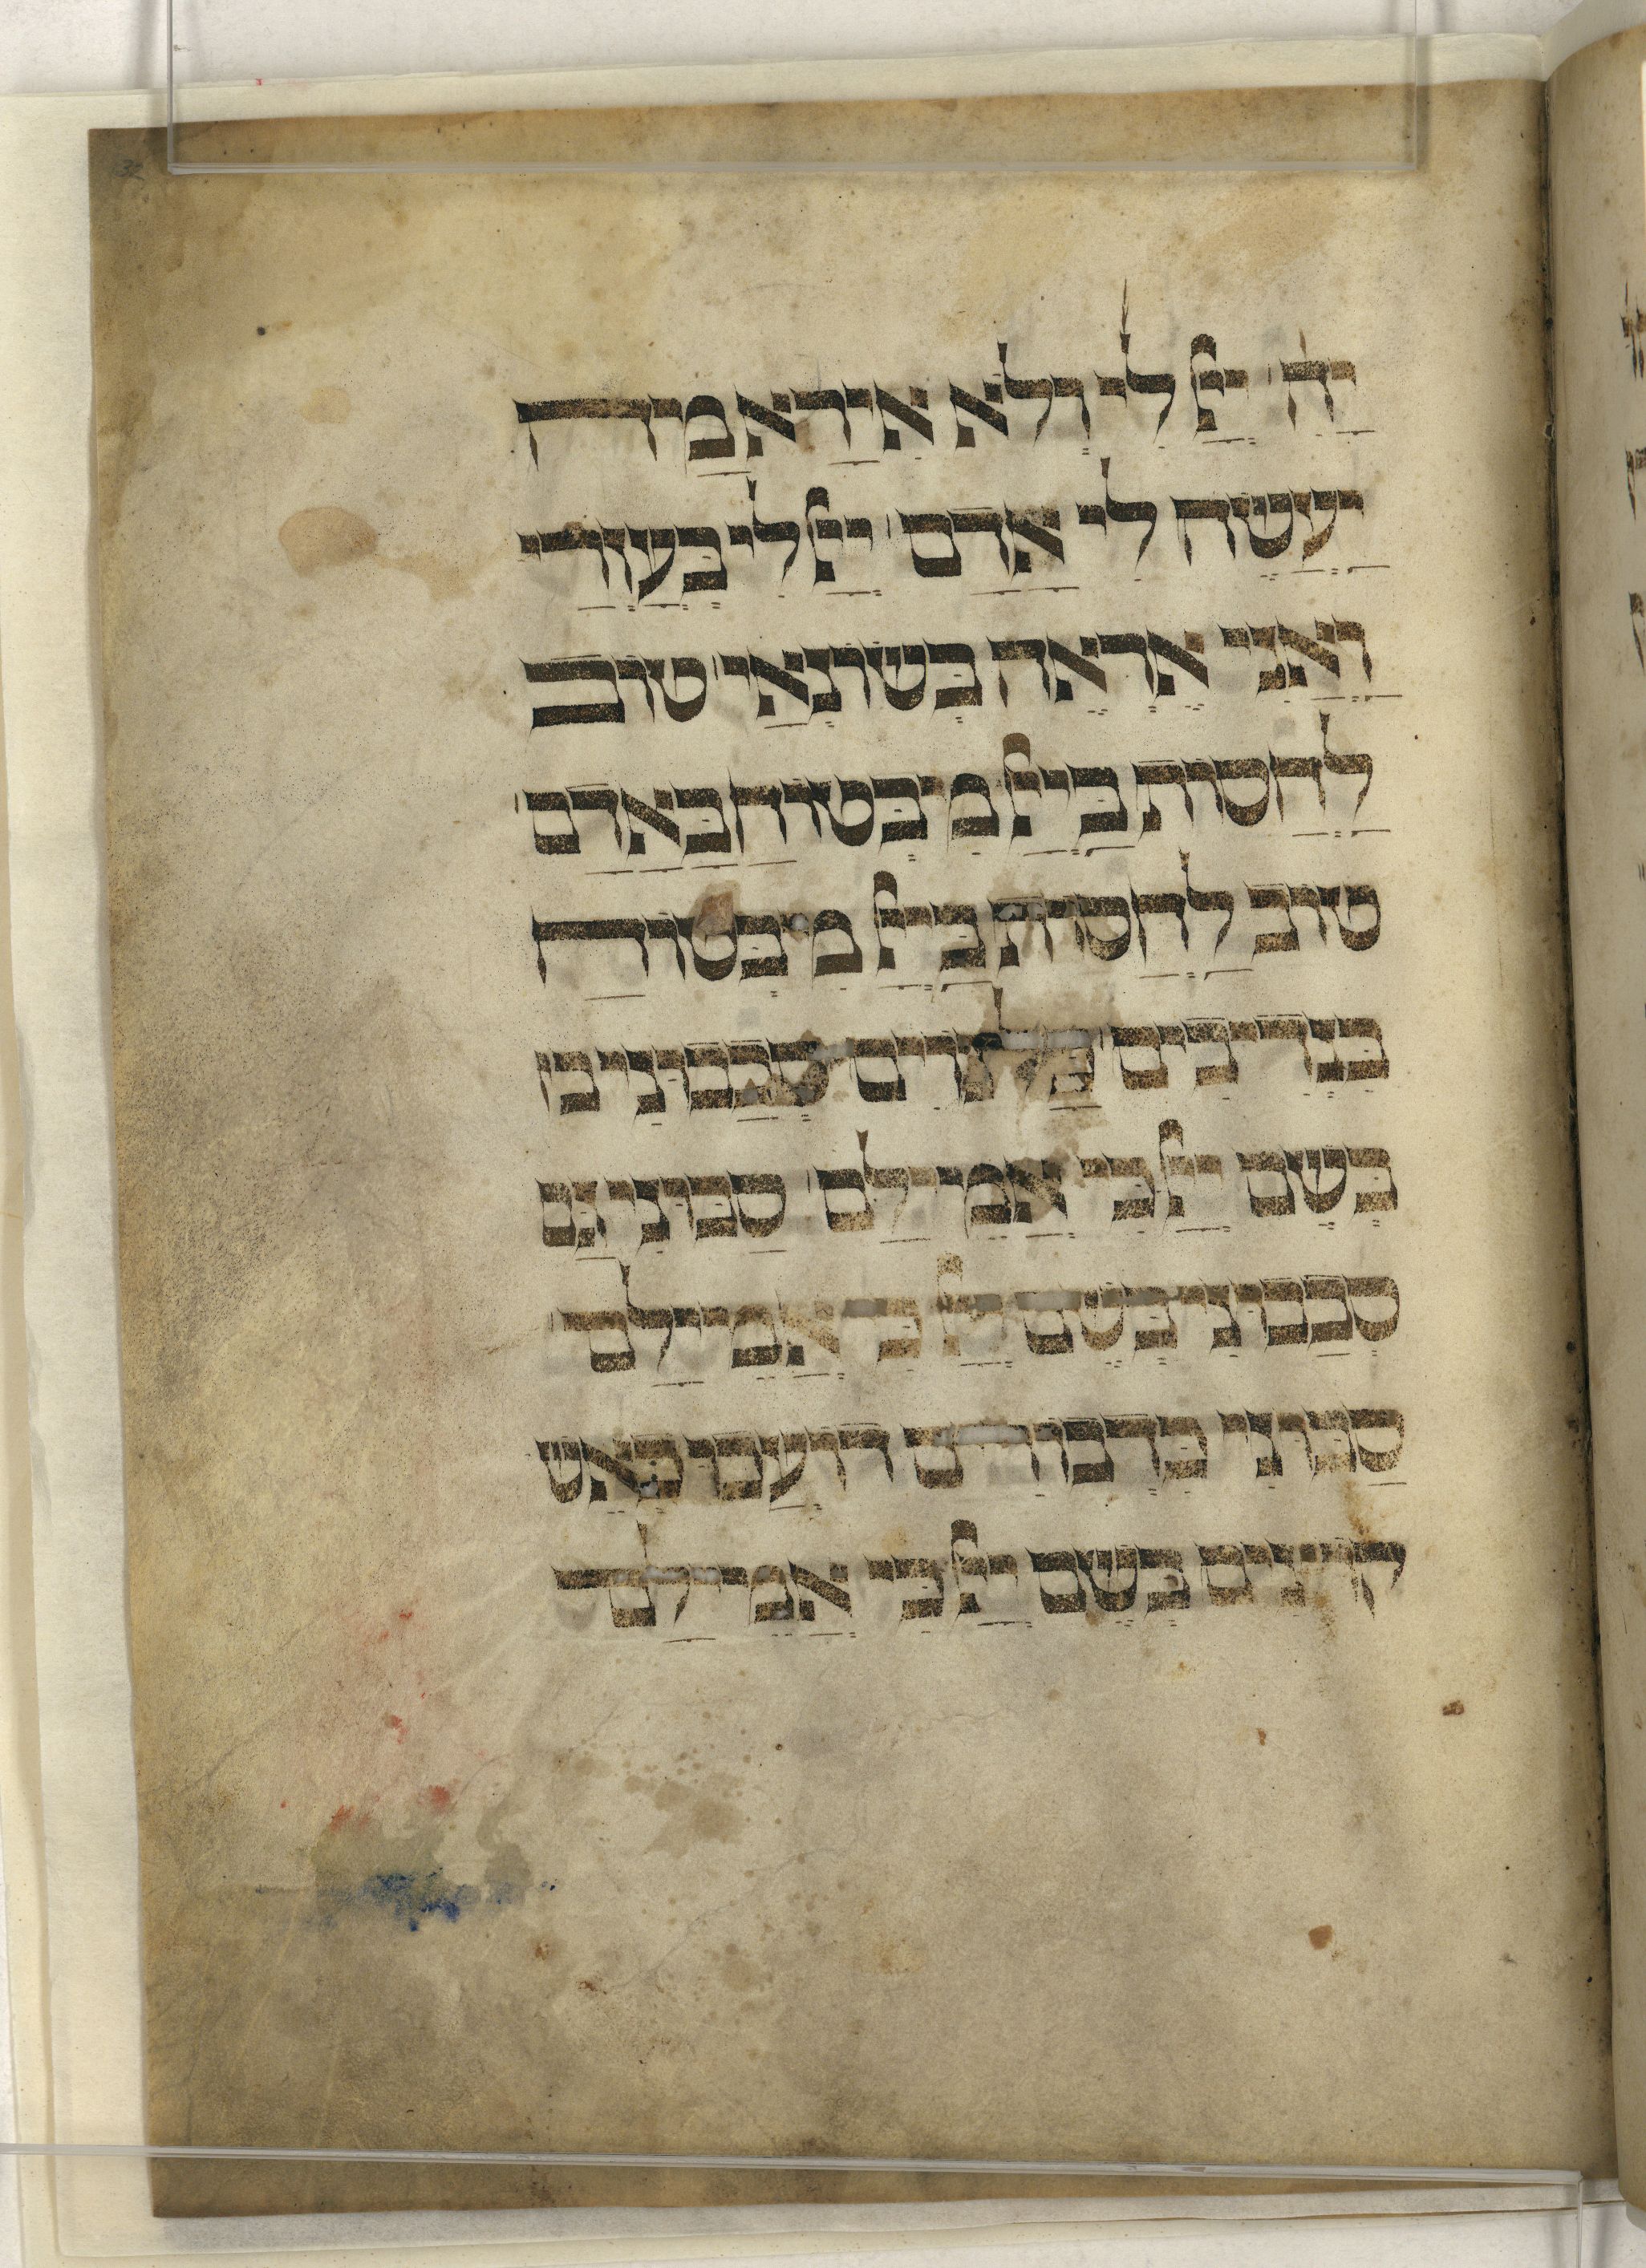 יָהּ׃ יְיָ לִי וְלֹא אִירָא מַה
יַעֲשֶׂה לִי אָדָם׃ יְיָ לִי בְּעוֹזְרָי
וַאֲנִי אֶרְאֶה בְּשׂוֹנְאָי׃ טוֹב
לַחֲסוֹת בַּיְיָ מִבְּטוֹחַ בָּאָדָם׃
טוֹב לַחֲסוֹת בַּיְיָ מִבְּטוֹחַ
בִּנְדִיבִים׃ כָּל גּוֹיִם סְבָבוּנִי
בְּשֵׁם יְיָ כִּי אֲמִילַם׃ סַבּוּנִי גַם
סְבָבוּנִי בְּשֵׁם יְיָ כִּי אֲמִילַם׃
סַבּוּנִי כִּדְבוֹרִים דוֹעֲכוּ כְּאֵשׁ
קוֹצִים בְּשֵׁם יְיָ כִּי אֲמִילַם׃